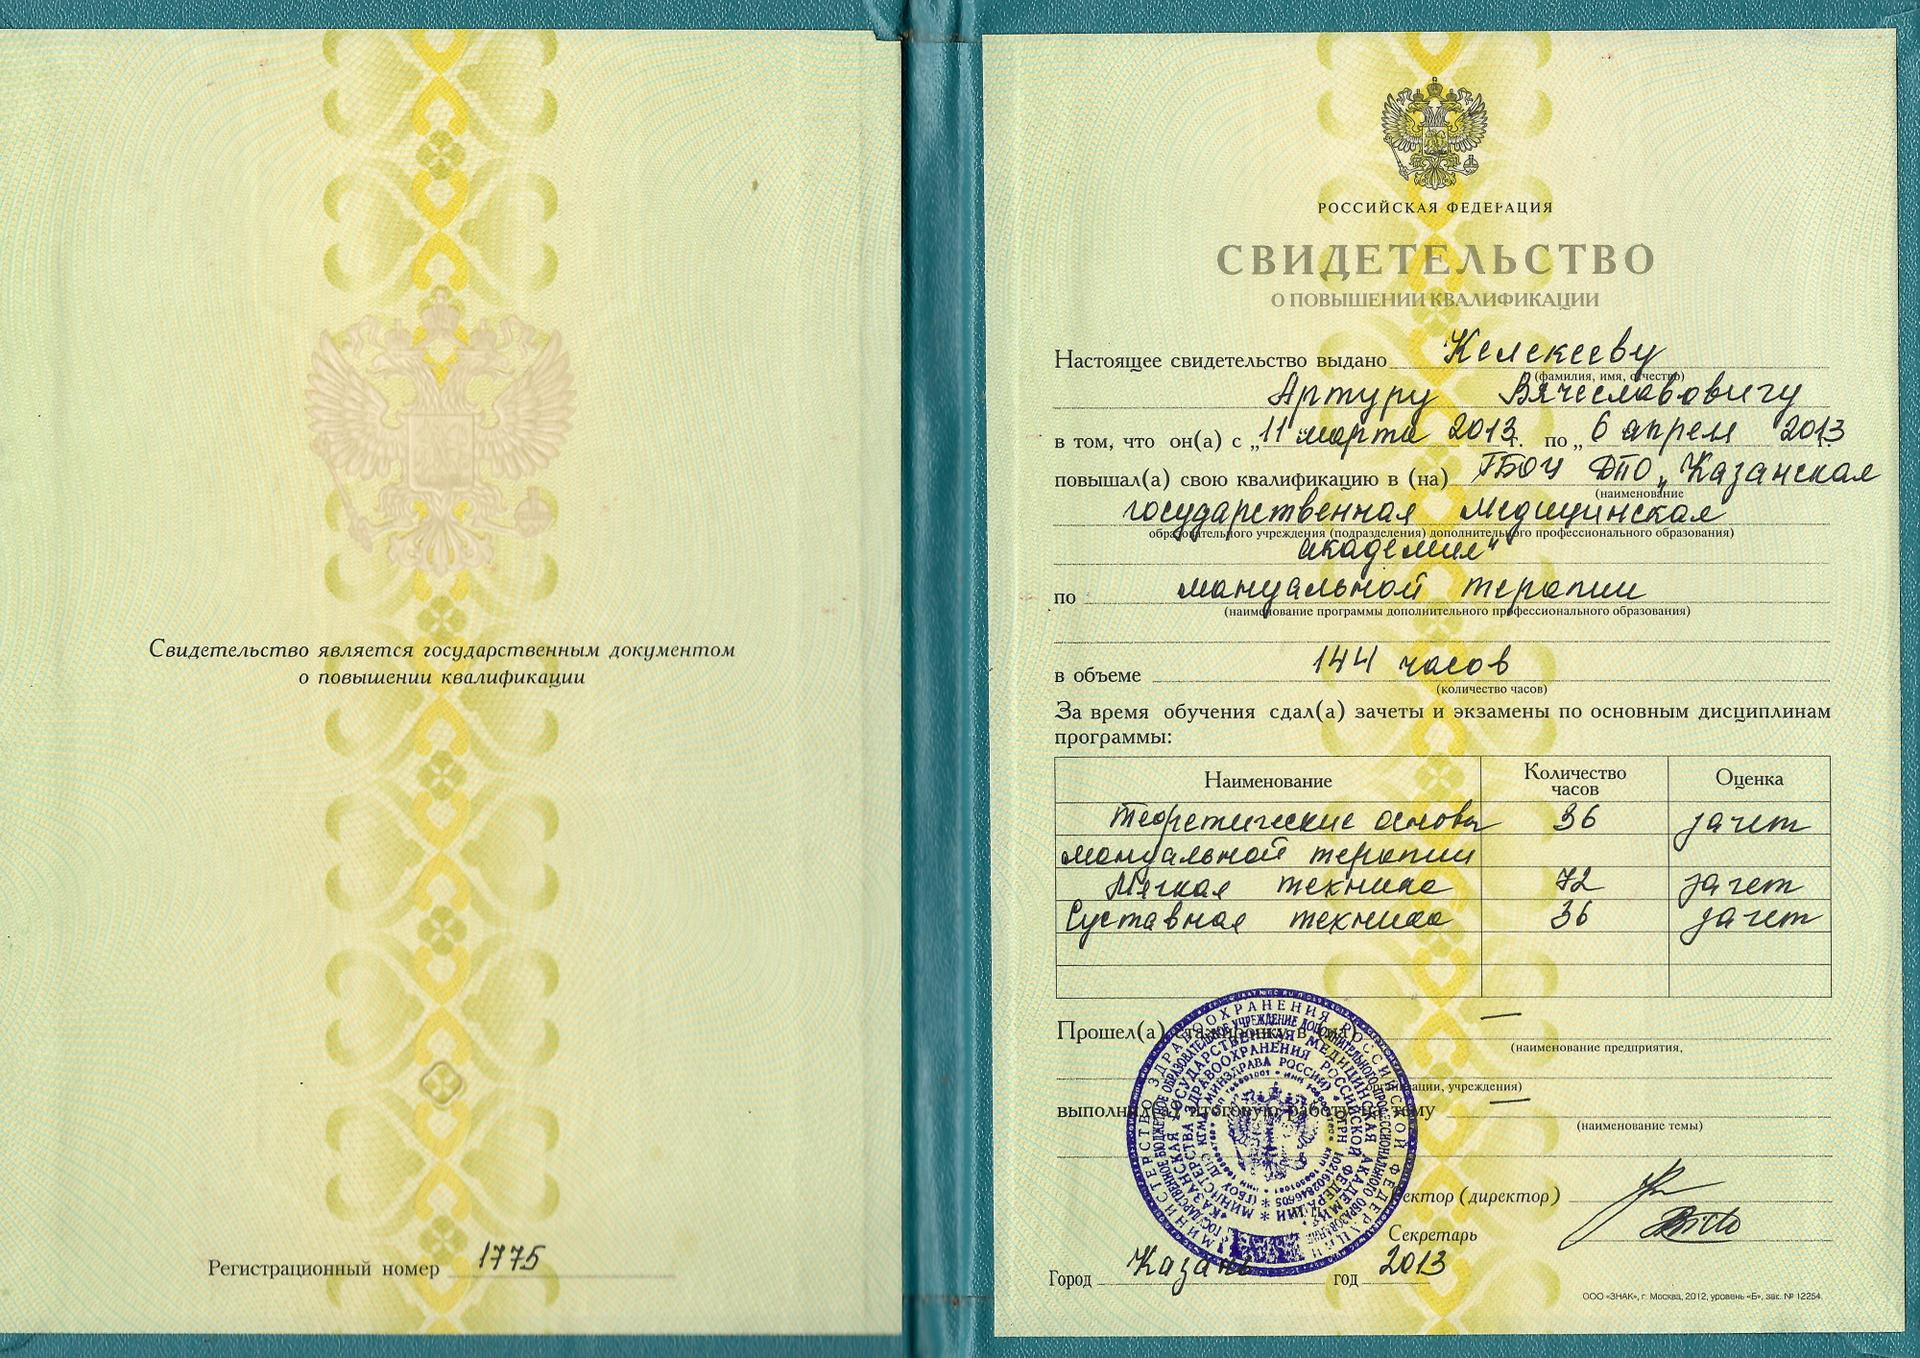 Свидетельство является государственным документом
о повышении квалификации
Регистрационный номер 1775
РОССИЙСКАЯ ФЕДЕРАЦИЯ
СВИДЕТЕЛЬСТВО
О ПОВЫШЕНИИ КВАЛИФИКАЦИИ
Настоящее свидетельство выдано Келекееву
(фамилия, имя, отчество)
Артуру Вячеславовичу
в том, что он(а) с „11" марта 2013г. по „6 апреля 2013
повышал(а) свою квалификацию в (на) ГБОУ ДПО „Казанская
(наименование
государственная медицинская
образовательного учреждения (подразделения) дополнительного профессионального образования)
академия"
по мануальной терапии
(наименование программы дополнительного профессионального образования)
в объеме 144 часов
(количество часов)
За время обучения сдал(а) зачеты и экзамены по основным дисциплинам
программы:
Наименование Количество часов Оценка
Теоретические основы 36 зачет
мануальной терапии
Мягкая техника 72 зачет
Суставная техника 36 зачет
Прошел(а) стажировку в (на) —
(наименование предприятия,
организации, учреждения)
выполнил(а) итоговую работу на тему —
(наименование темы)
Ректор (директор)
Секретарь
Город Казань год 2013
ООО «ЗНАК», г. Москва, 2012, уровень «Б», зак. № 12254.